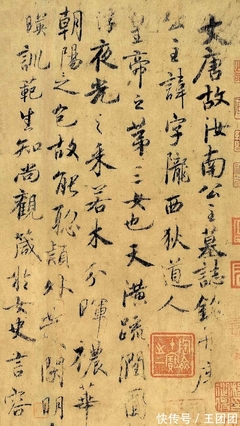 大唐故汝南公主墓誌銘十月
公主諱字隴西狄道人
皇帝之第三女也天潢疏潤圓
浮夜光之采若木分暉穠華
朝陽之色故能聡穎外發閑明
暎訓範生知尚觀箴於女史言容
快传号／王团团